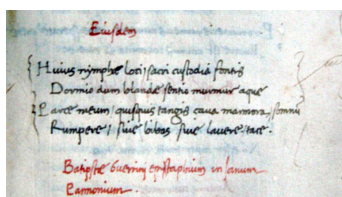 Eiusdem
Huius nymphe loci, sacri custodia fontis
Dormio dum blande sentio murmur aque
Parce meum quisquis tangis cava marmora, somnum
Rumpere, sive bibas, sive lavere, tace.
Baptiste Guerini epitaphium in Ianum
Pannonium.